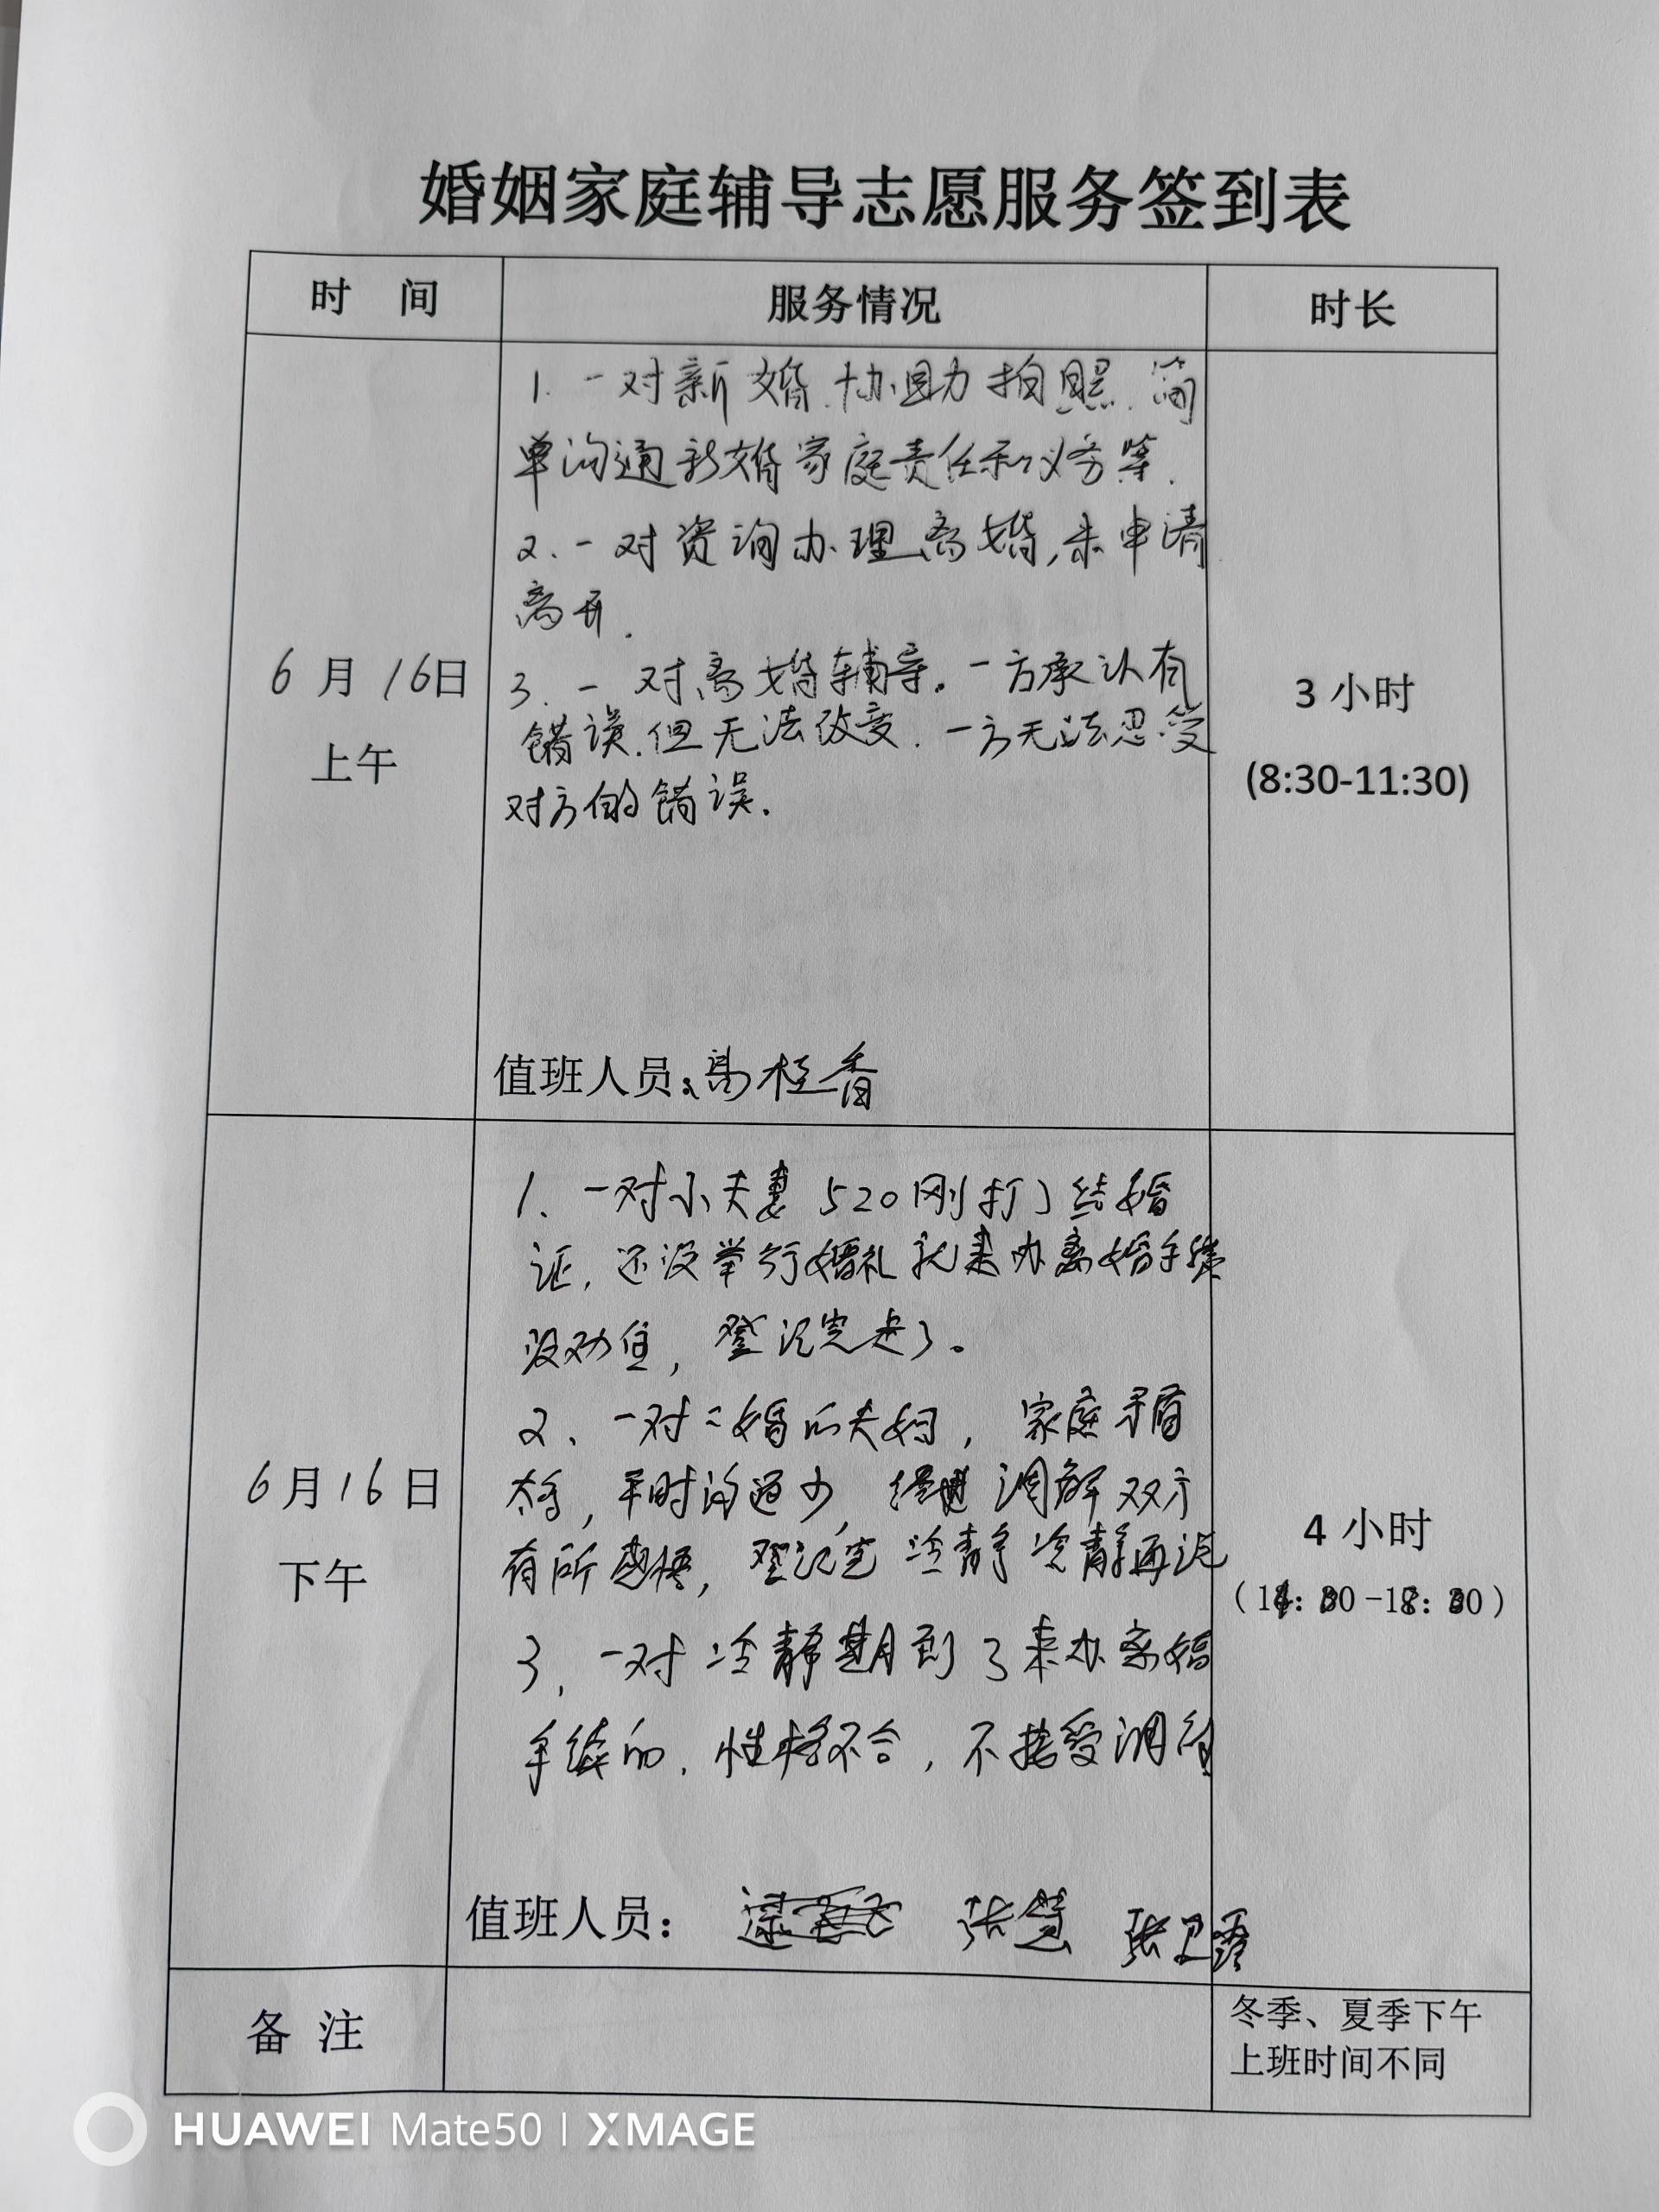 婚姻家庭辅导志愿服务签到表
时 间
服务情况
时长
1. 一对新婚.协助拍照.简
单沟通新婚家庭责任和义务等.
2、一对资询办理离婚,未申请
离开.
3. 一对离婚辅导.一方承认有
错误.但无法改变.一方无法忍受
对方的错误.
6月16日
上午
3 小时
(8:30-11:30)
值班人员:高桂香
1、一对小夫妻 520刚打了结婚
证,还没举行婚礼就来办离婚手续
没劝住,登记完走了。
2、一对二婚的夫妇,家庭矛盾
太多,平时沟通少,经过调解双方
有所感悟,登记完冷静冷静再说
3、一对冷静期到了来办离婚
手续的.性格不合,不接受调解
6月16日
下午
4 小时
值班人员: 张慧 张卫霞
备 注
冬季、夏季下午
上班时间不同
HUAWEI Mate50 | XMAGE